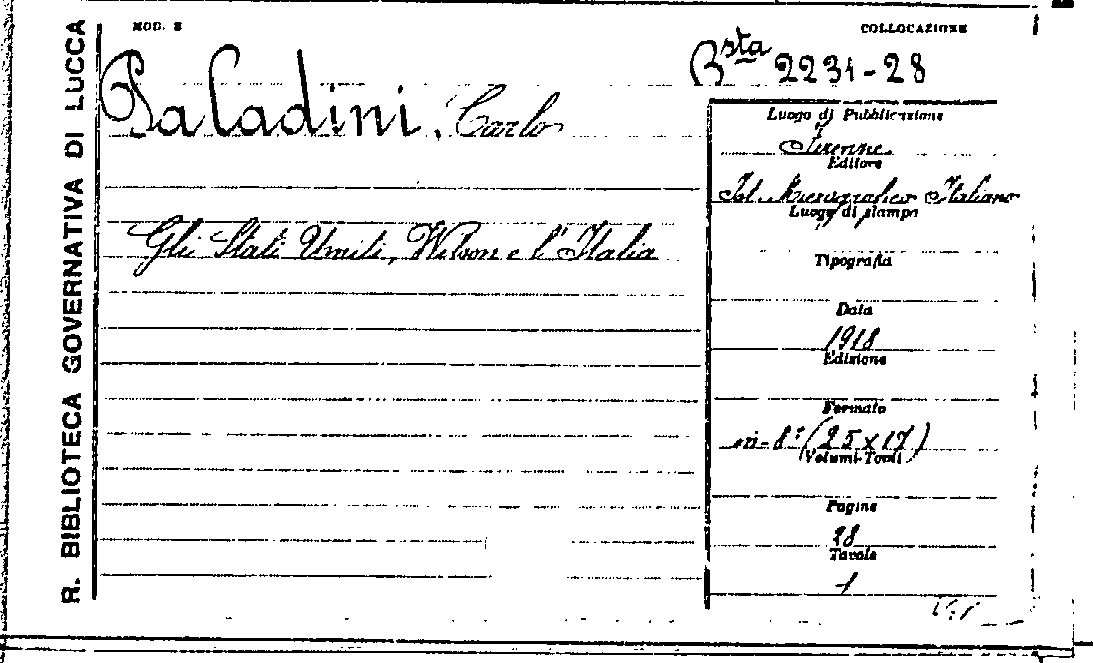 R. BIBLIOTECA GOVERNATIVA DI LUCCA
MOD. S
COLLOCAZIONE
Bsta 2231-28
Paladini, Carlo
Gli Stati Uniti, Wilson e l'Italia
Luogo di Pubblicazione
Firenze
Editore
Ist. Micrografico Italiano
Luogo di stampa
Tipografia
Data
1918
Edizione
Formato
in-8° (25 x 17)
Volumi-Tomi
Pagine
Tavole
1